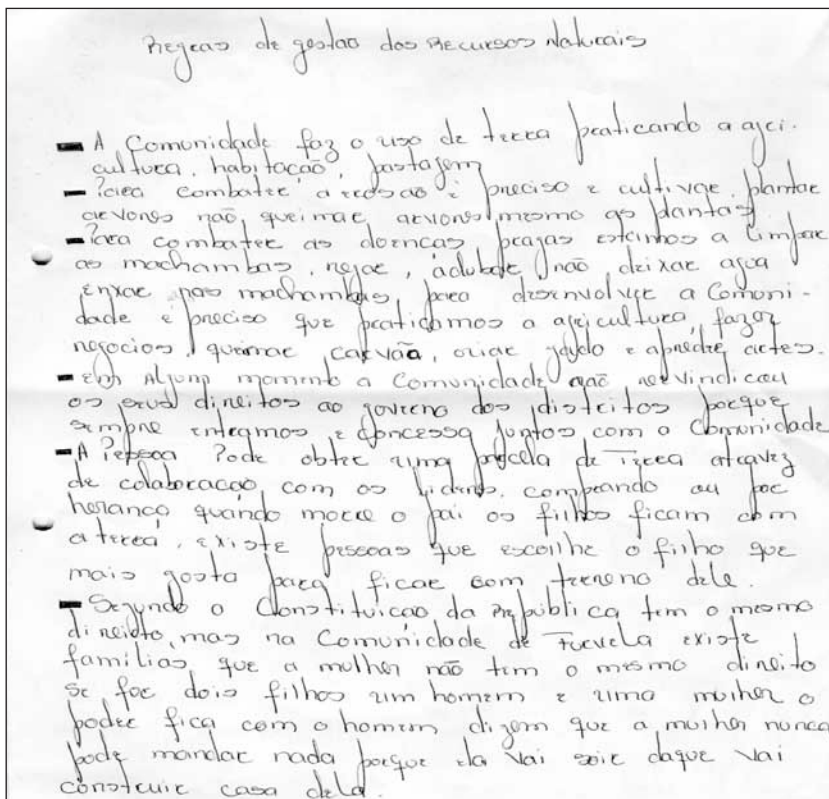 Regras de gestão dos Recursos Naturais
- A Comunidade faz o uso de terra praticando a agri-
cultura, habitação, pastagem
- Para combater a erosão é preciso e cultivar, plantar
arvores não queimar arvores mesmo as plantas.
- Para combater as doenças pragas estamos a limpar
as machambas, regar, adubar não deixar agua
enxar nas machambas, para desenvolver a Comuni-
dade é preciso que praticamos a agricultura, fazer
negocios, queimar carvão, criar gado e aprender artes.
- Em Algum momento a Comunidade não reevindicou
os seus direitos ao governo dos distritos porque
sempre entramos e concessa juntos com a Comunidade
- A Pessoa Pode obter uma parcela de Terra atravez
de colaboracao com os liders, comprando ou por
herança quando morre o pai os filhos ficam com
a terra, existe pessoas que escolhe o filho que
mais gosta para ficar com terreno dele.
- Segundo a Constituicao da República tem o mesmo
direioto, mas na Comunidade de Furvela existe
familias que a mulher não tem o mesmo direito
se for dois filhos um homem e uma mulher o
poder fica com o homem dizem que a mulher nunca
pode mandar nada porque ela vai sair daque vai
construir casa dela.